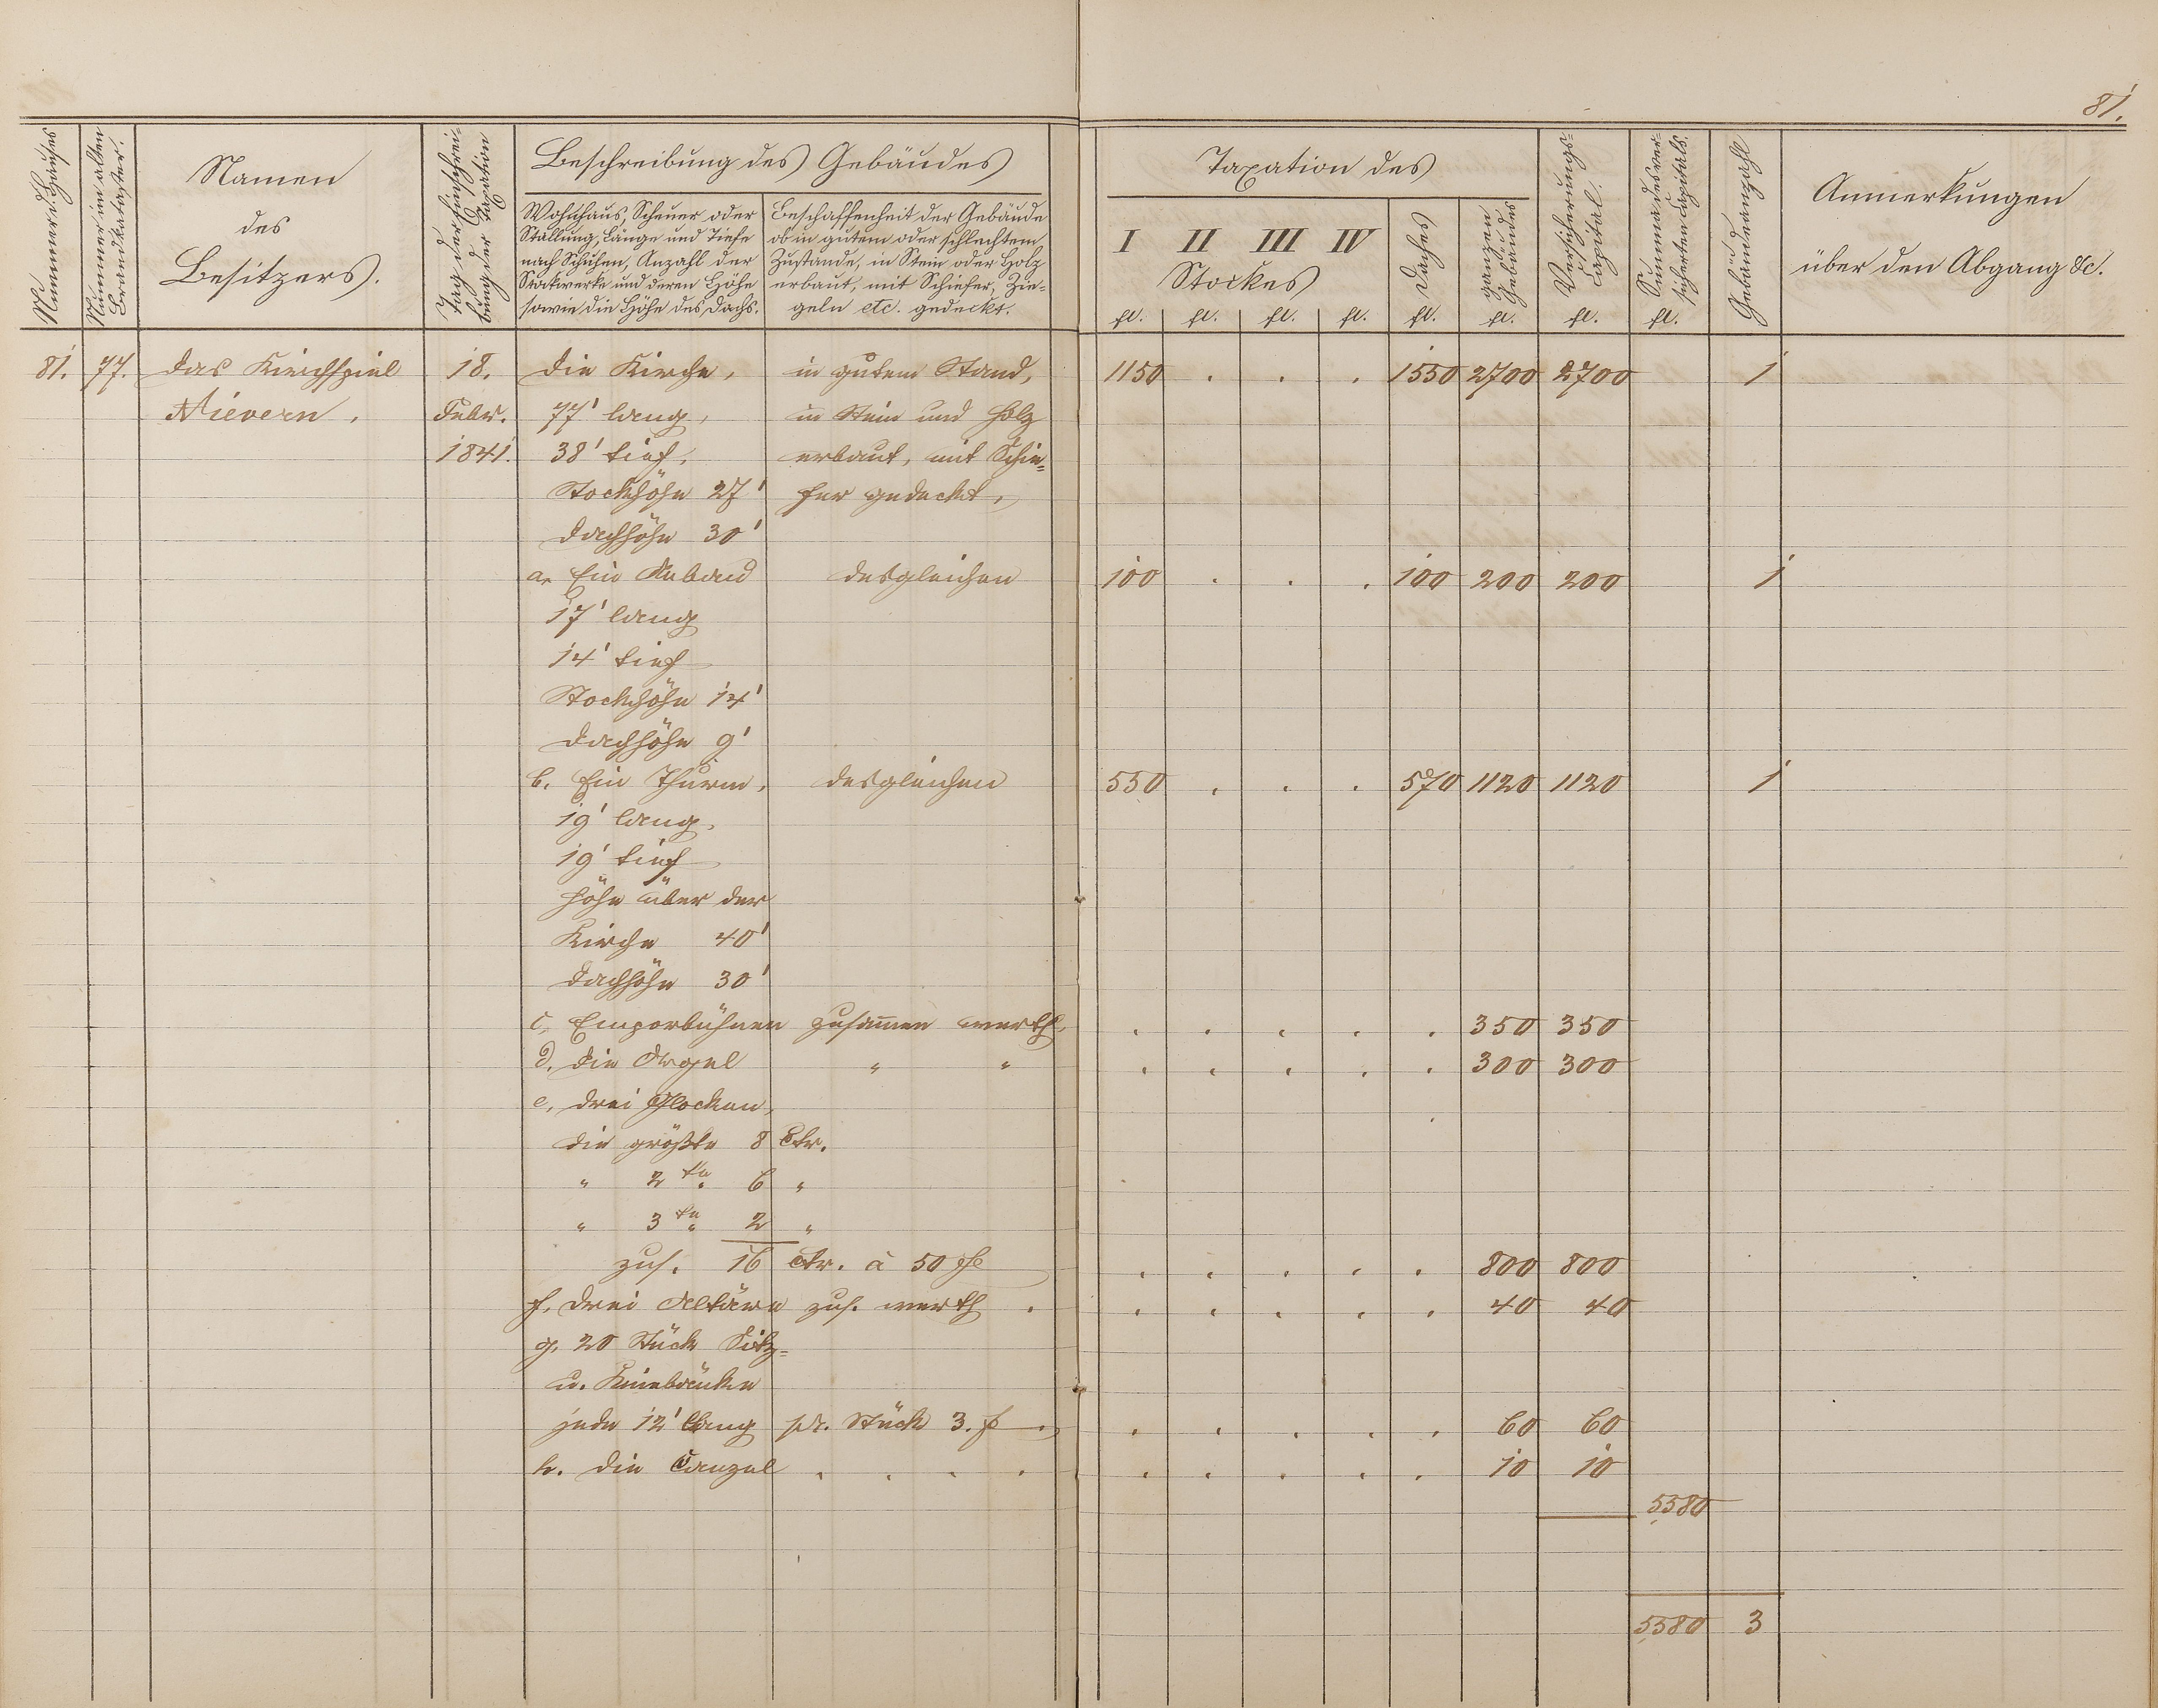 81.
Nummer d. Hauses
Nummer im alten Brandkataster.
Namen
des
Besitzers.
Tag der Einschrei-
bung der Taxation
Beschreibung des Gebäudes
Wohnhaus, Scheuer oder
Stallung, Länge und Tiefe
nach Schuhen, Anzahl der
Stockwerke und deren Höhe
sowie die Höhe des Dachs.
Beschaffenheit der Gebäude
ob in gutem oder schlechtem
Zustande, in Stein oder Holz
erbaut, mit Schiefer, Zie-
geln etc. gedeckt.
Taxation des
I II III IV
Stockes
Daches
ganzen Gebäudes
Versicherungs-
Capital.
Summa des ver-
sicherten Capitals.
Gebäudeanzahl
Anmerkungen
über den Abgang &c.
fl. fl. fl. fl. fl. fl. fl. fl.
81. 77. Das Kirchspiel 18. Die Kirche, in gutem Stand, 1150 . . . 1550 2700 2700 1
Nievern. Febr. 77' lang, in Stein und Holz
1841. 38' tief, erbaut, mit Schie-
Stockhöhe 27' fer gedeckt,
Dachhöhe 30'
a. Ein Anbau desgleichen 100 . . . 100 200 200 1
17' lang
14' tief
Stockhöhe 14'
Dachhöhe 9'
b. Ein Thurm, desgleichen 550 . . . 570 1120 1120 1
19' lang,
19' tief
Höhe über der
Kirche 40'
Dachhöhe 30'
c. Emporbühnen zusamen werth, . . . . . 350 350
d. Die Orgel " " . . . . . 300 300
e. Drei Glocken,
die größte 8 Ctr.
" 2te. 6 "
" 3te. 2 "
zus. 16 Ctr. à 50 fl . . . . . 800 800
f. Drei Altäre zus. werth . . . . . . 40 40
g. 20 Stück Sitz-
u. Kniebänke
jede 12' lang pr. Stück 3. f . . . . . . 60 60
h. Die Canzel . . . . . . . . . 10 10
5580
5580 3